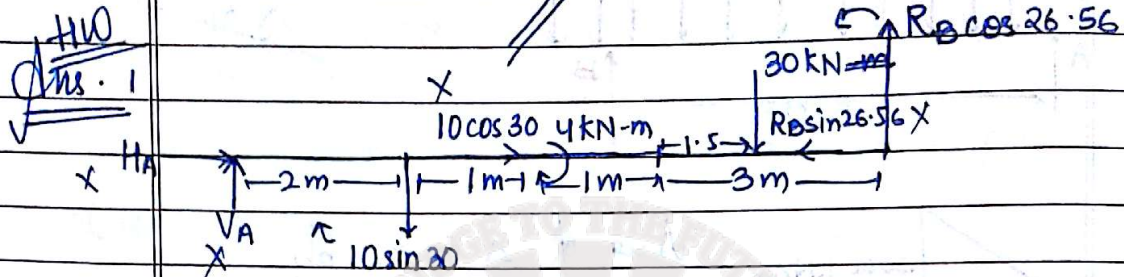 HW
Ans. 1
R_B cos 26.56
30 kN-m
X
10 cos 30 4 kN-m 1.5 R_B sin 26.56 X
X H_A 2m 1m 1m 3m
V_A
X 10 sin 30